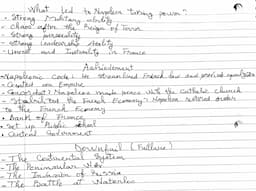 What led to Napoleon "turning power"
• Strong Military ability
• Chaos after the Reign of Terror
• Strong personality
• Strong leadership ability
• Unrest and Instability in France
Achievement
• Napoleonic Code: He streamlined French law and
• Created an Empire
• Concordat: Napoleon made peace with the Catholic church
• the French Economy: Napoleon restored order
to the French Economy
• Bank of France
• Set up Public School
• Central Government
Downfall (Failure)
- The Continental System
- The Peninsular War
- The Invasion of Russia
- The Battle of Waterloo